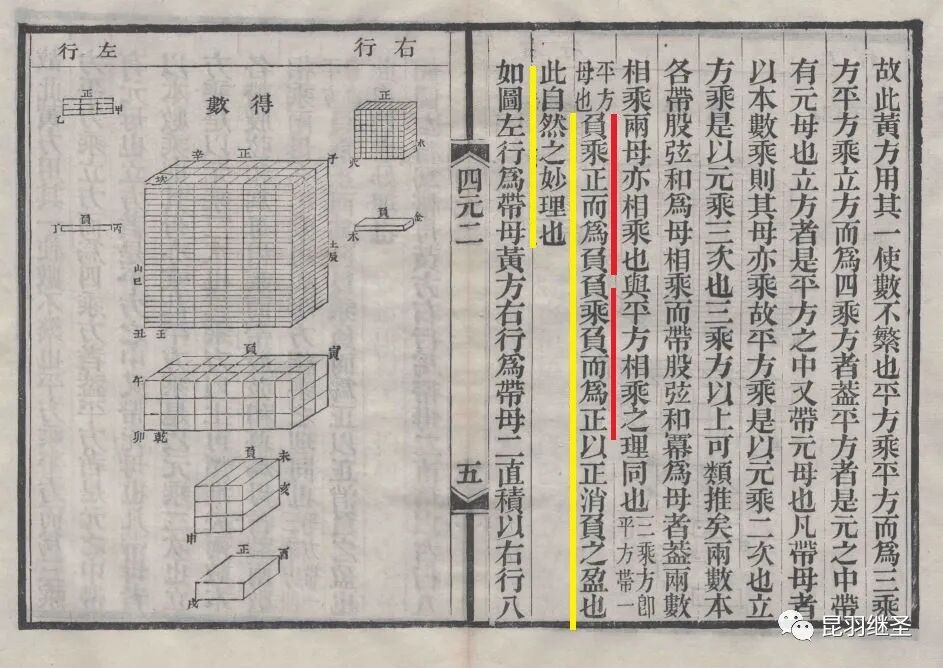 故此黃方用其一使數不繁也平方乘平方而爲三乘
方平方乘立方而爲四乘方者葢平方者是元之中帶
有元母也立方者是平方之中又帶元母也凡帶母者
以本數乘則其母亦乘故平方乘是以元乘二次也立
方乘是以元乘三次也三乘方以上可類推矣兩數本
各帶股弦和爲母相乘而帶股弦和冪爲母者葢兩數
相乘兩母亦相乘也與平方相乘之理同也三乘方卽
平方帶一
平方
母也負乘正而爲負負乘負而爲正以正消負之盈也
此自然之妙理也
如圖左行爲帶母黃方右行爲帶母二直積以右行八
四元二
五
右行
左行
得數
正
木
火
負
金
水
正
甲
乙
負
丙
丁
辛
正
子
坎
土
辰
山
巳
丑
壬
負
寅
午
卯
乾
負
未
亥
申
正
酉
戌
昆羽继圣